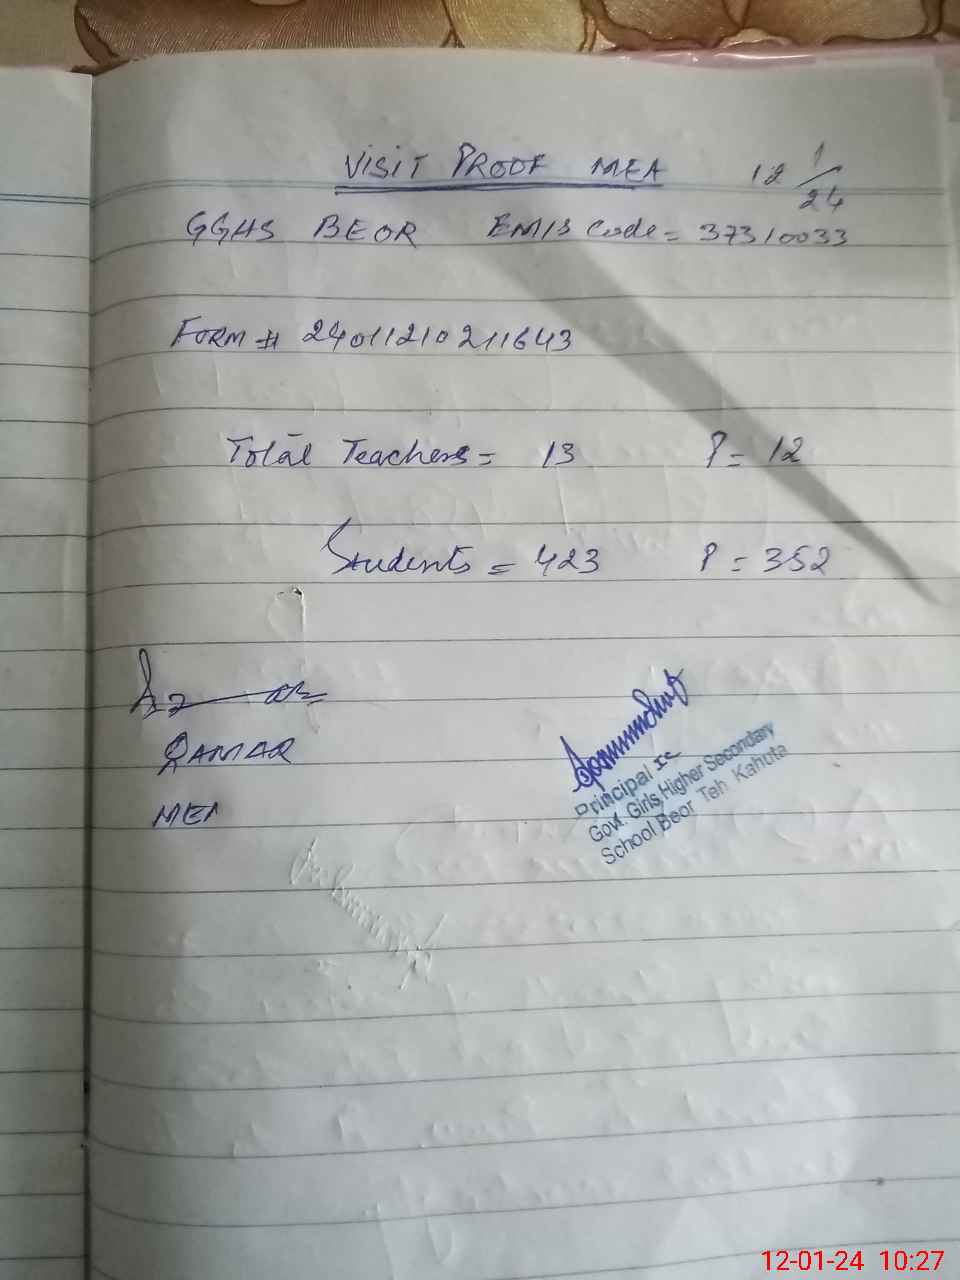 VISIT PROOF MEA 12/1/24
GGHS BEOR EMIS Code = 37310033
FORM # 240112102111643
Total Teachers = 13 P = 12
Students = 423 P = 352
QAMAR
MEA
Principal IC
Govt. Girls Higher Secondary
School Beor Teh Kahuta
12-01-24 10:27